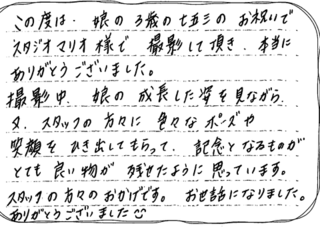 この度は、娘の3歳の七五三のお祝いで
スタジオマリオ様で 撮影して頂き、本当に
ありがとうございました。
撮影中、娘の成長した姿を見ながら、
又、スタッフの方々に色々なポーズや
笑顔をひき出してもらって、記念となるものが
とても良い物が残せたように思っています。
スタッフの方々のおかげです。お世話になりました。
ありがとうございました